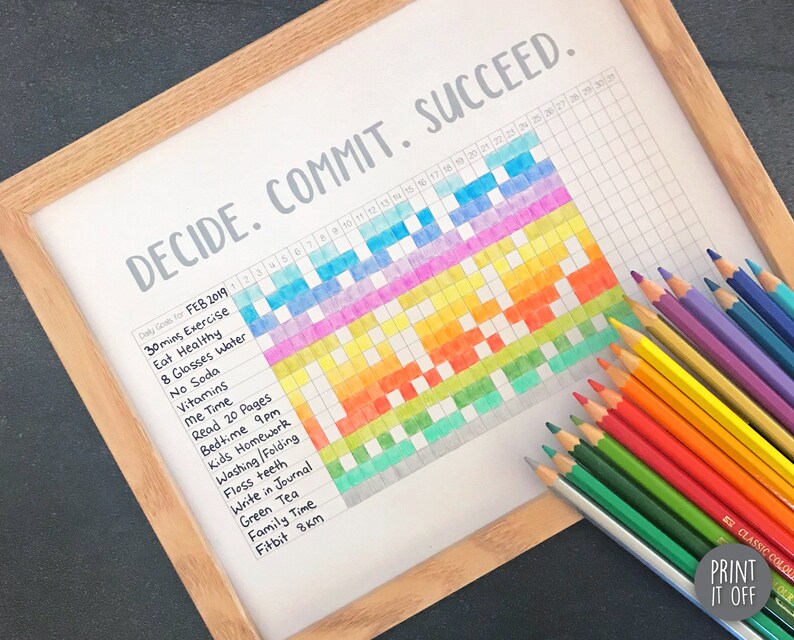 DECIDE. COMMIT. SUCCEED.
Daily Goals for FEB 2019 1 2 3 4 5 6 7 8 9 10 11 12 13 14 15 16 17 18 19 20 21 22 23 24 25 26 27 28 29 30 31
30mins Exercise
Eat Healthy
8 Glasses Water
No Soda
Vitamins
me Time
Read 20 Pages
Bedtime 9pm
Kids Homework
Washing/Folding
Floss teeth
Write in Journal
Green Tea
Family Time
Fitbit 8KM
CLASSIC COLOU
PRINT
IT OFF